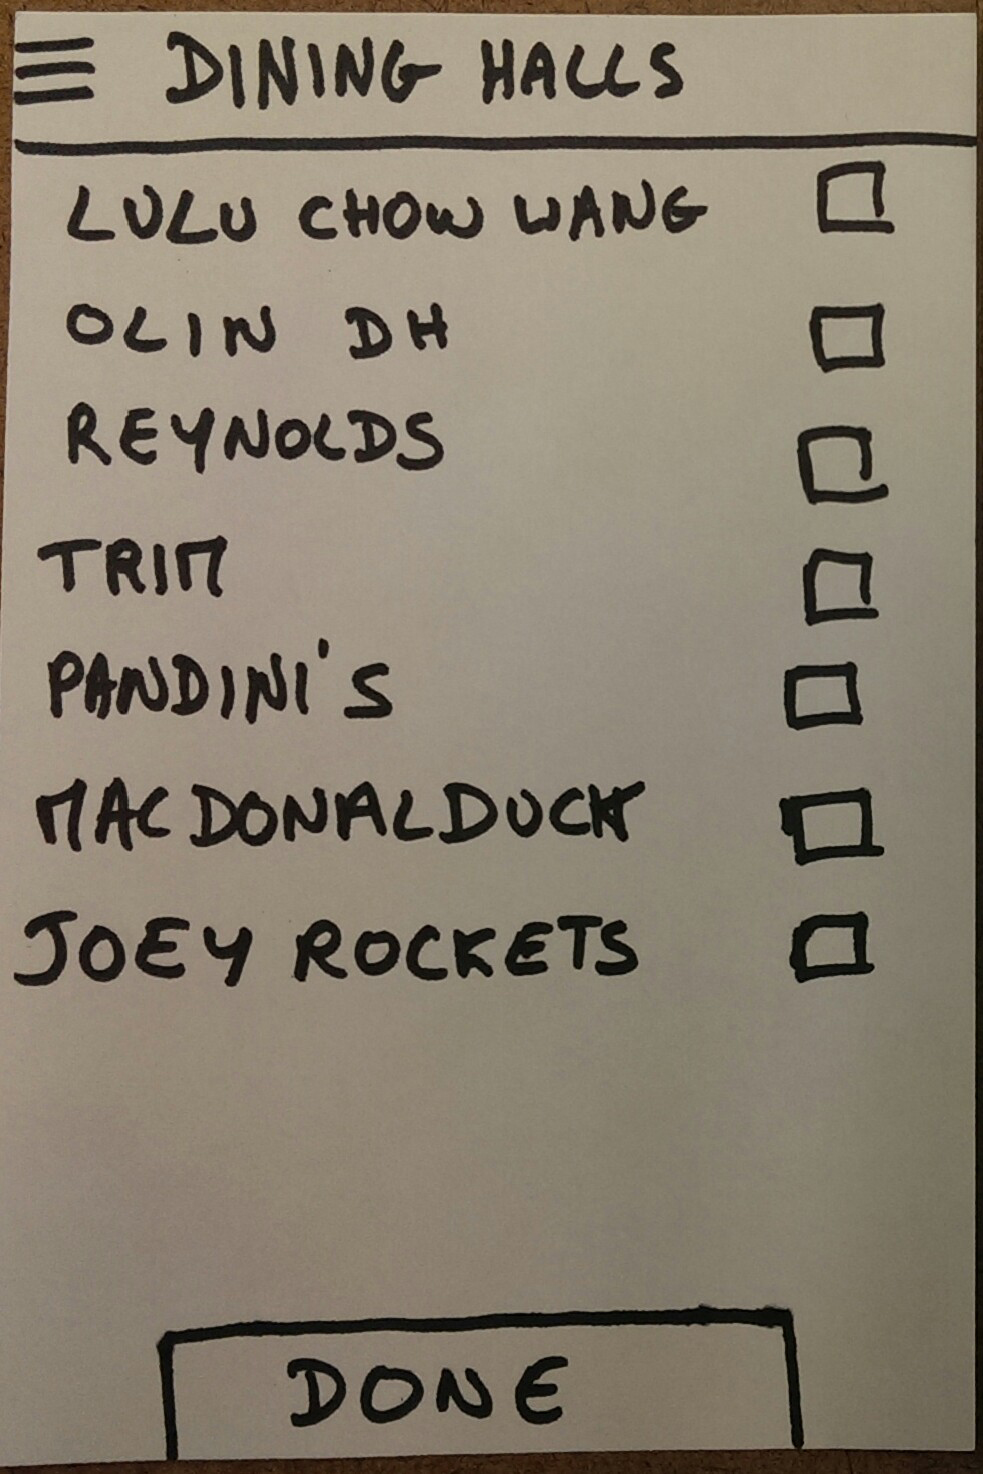 DINING HALLS
LULU CHOW WANG
OLIN DH
REYNOLDS
TRIM
PANDINI'S
MACDONALDUCK
JOEY ROCKETS
DONE